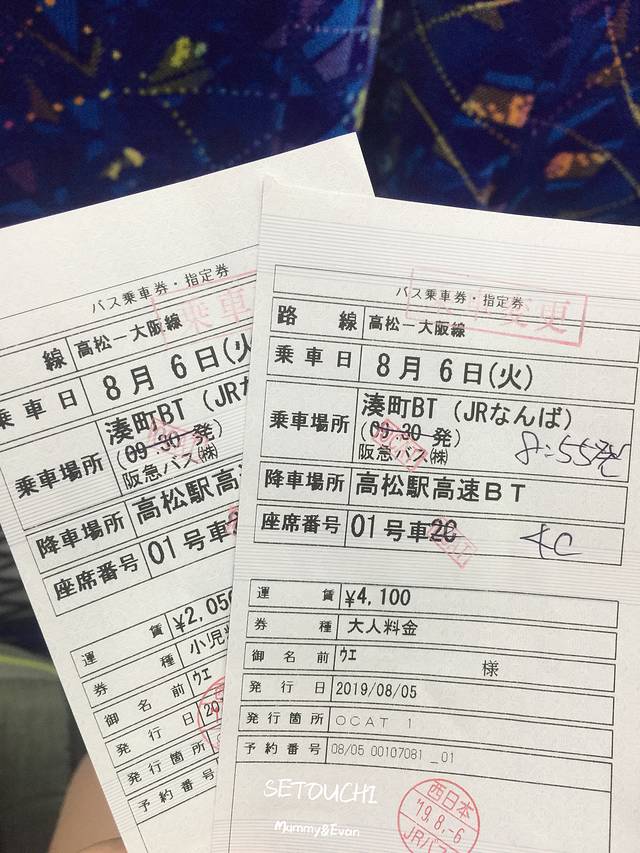 バス乗車券・指定券
線 高松ー大阪線
乗車日 8月 6日(火
乗車場所 湊町BT (JRな
(09:30 発)
阪急バス㈱
降車場所 高松駅高速
座席番号 01号車
運 賃 ¥2,05
券 種 小児
御名前 ウエ
発行日 20
発行箇所
予約番号
乗車
バス乗車券・指定券
変更
路 線 高松ー大阪線
乗車日 8月 6日(火)
乗車場所 湊町BT (JRなんば)
(09:30 発) 8:55発
阪急バス㈱
降車場所 高松駅高速BT
座席番号 01号車2C 4C
運 賃 ¥4,100
券 種 大人料金
御名前 ウエ 様
発行日 2019/08/05
発行箇所 OCAT 1
予約番号 08/05 00107081 _01
西日本
'19.8.-6
JRバス
SETOUCHI
Mummy&Evan